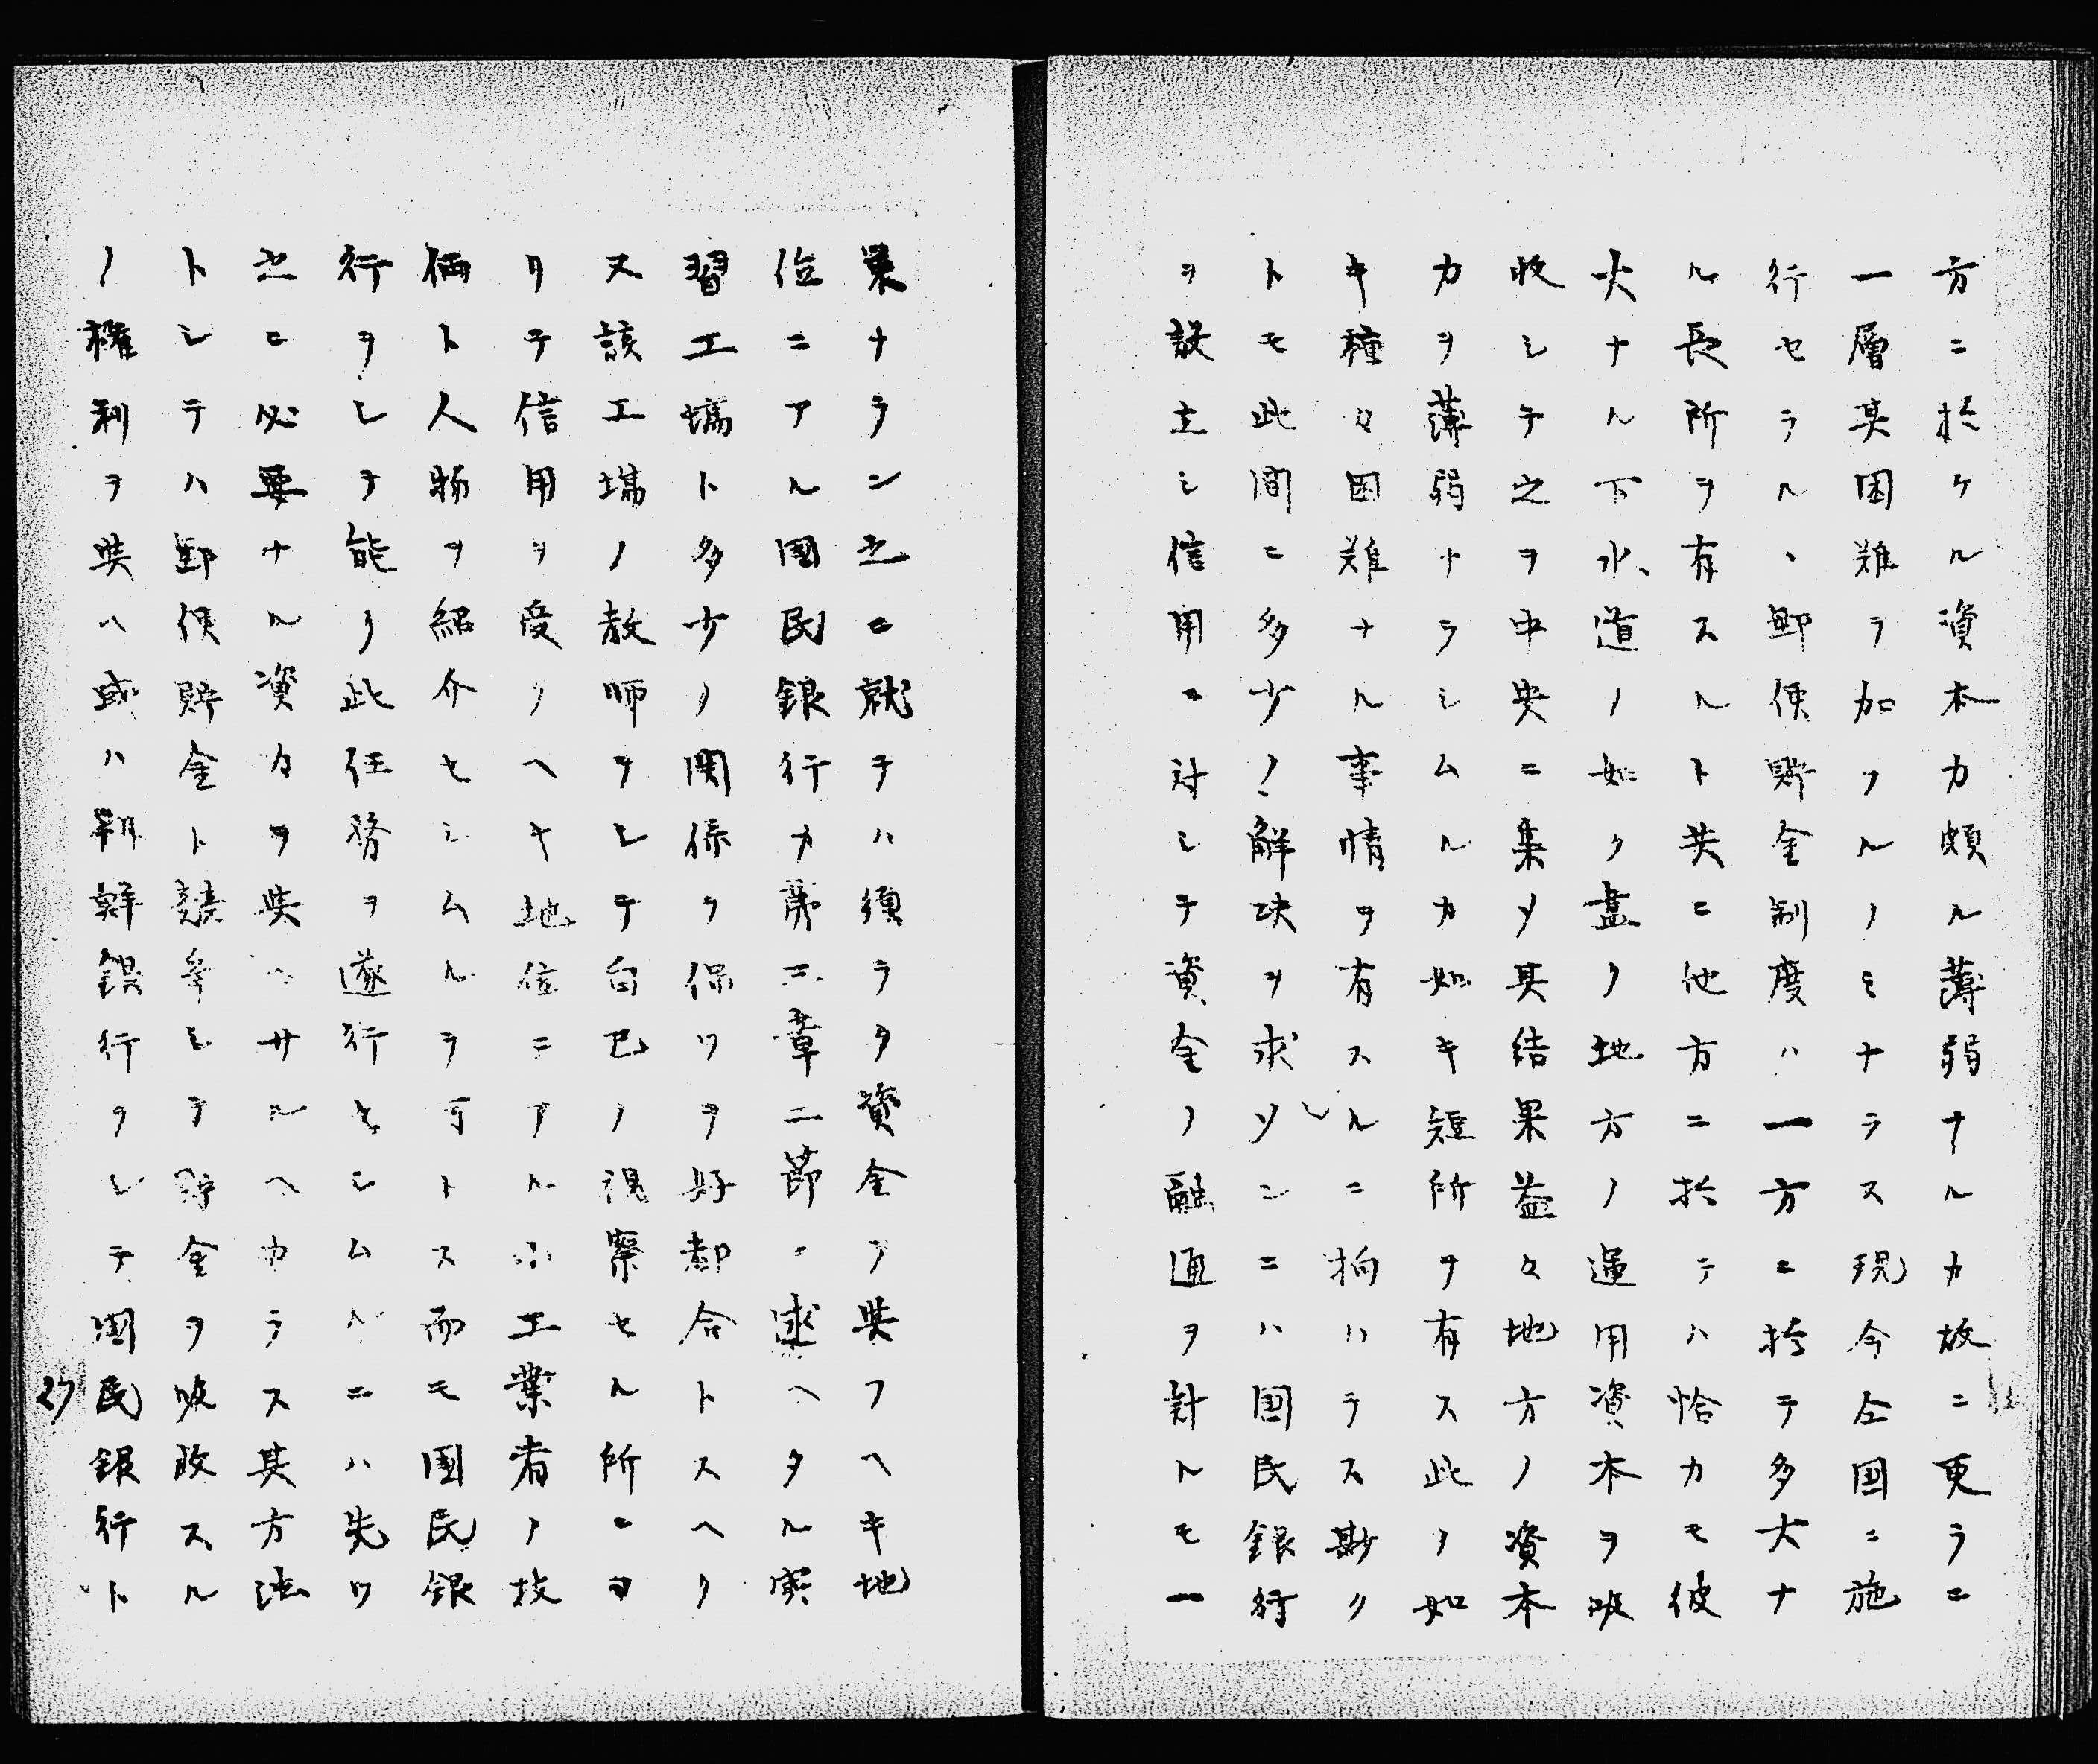 方ニ於ケル資本カ頗ル薄弱ナルカ故ニ更ラニ
一層其困難ヲ加フルノミナラス現今全国ニ施
行セラルヽ郵便貯金制度ハ一方ニ於テ多大ナ
ル長所ヲ有スルト共ニ他方ニ於テハ恰カモ彼
大ナル下水道ノ如ク盡ク地方ノ運用資本ヲ吸
收シテ之ヲ中央ニ集メ其結果益々地方ノ資本
力ヲ薄弱ナラシムルカ如キ短所ヲ有ス此ノ如
キ種々困難ナル事情ヲ有スルニ拘ハラス斯ク
トモ此間ニ多少ノ解决ヲ求メンニハ国民銀行
ヲ設立シ信用ニ対シテ資金ノ融通ヲ計ルモ一
策ナラン之ニ就テハ須ラク資金ヲ與フヘキ地
位ニアル国民銀行カ第二章二節ニ述ヘタル実
習工場ト多少ノ関係ヲ保ツヲ好都合トスヘク
又該工場ノ教師ヲシテ自己ノ視察セル所ニヨ
リテ信用ヲ受クヘキ地位ニアル小工業者ノ技
倆ト人物ヲ紹介セシムルヲ可トス而モ国民銀
行ヲシテ能ク此任務ヲ遂行セシムルニハ先ツ
之ニ必要ナル資力ヲ與ヘサルヘカラス其方法
トシテハ郵便貯金ト競争シテ貯金ヲ吸收スル
ノ権利ヲ與ヘ或ハ勧業銀行ヲシテ国民銀行ト
27